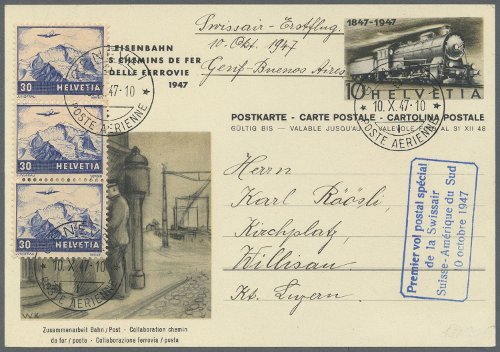 Swissair - Erstflug
10. Okt. 1947
Genf - Buenos Aires
1847-1947
EISENBAHN
S CHEMINS DE FER
DELLE FERROVIE
1947
10
HELVETIA
30
HELVETIA
30
HELVETIA
30
HELVETIA
47-10
POSTE AERIENNE
10.X.47-10
POSTE AERIENNE
10.X.47-10
POSTE AERIENNE
POSTKARTE - CARTE POSTALE - CARTOLINA POSTALE
GÜLTIG BIS — VALABLE JUSQU'AU — VALEVOLE AL 31 XII 48
Herrn
Karl Röösli,
Kirchplatz,
Willisau
Kt. Luzern
Premier vol postal spécial
de la Swissair
Suisse-Amérique du Sud
10 octobre 1947
WK
Zusammenarbeit Bahn/Post - Collaboration chemin
de fer/poste - Collaborazione ferrovia/posta